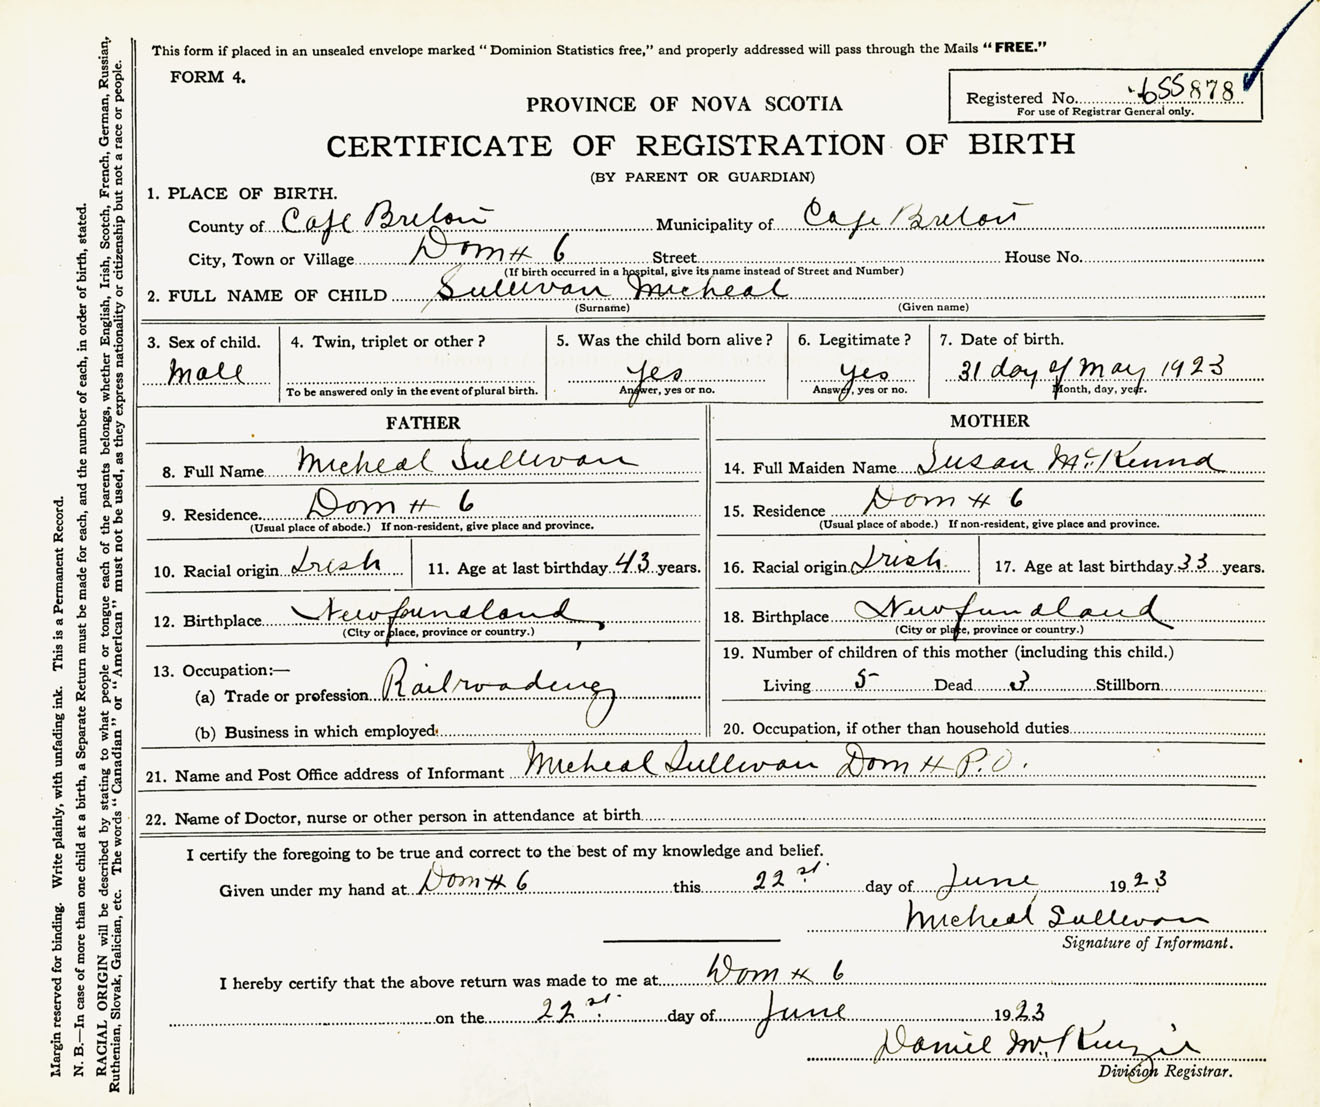 This form if placed in an unsealed envelope marked "Dominion Statistics free," and properly addressed will pass through the Mails "FREE."
FORM 4.
Registered No. 655878
For use of Registrar General only.
PROVINCE OF NOVA SCOTIA
CERTIFICATE OF REGISTRATION OF BIRTH
(BY PARENT OR GUARDIAN)
1. PLACE OF BIRTH.
County of Cape Breton Municipality of Cape Breton
City, Town or Village Dom # 6 Street House No.
(If birth occurred in a hospital, give its name instead of Street and Number)
2. FULL NAME OF CHILD Sullivan Micheal
(Surname) (Given name)
3. Sex of child. 4. Twin, triplet or other? 5. Was the child born alive? 6. Legitimate? 7. Date of birth.
Male yes yes 31 day of May 1923
To be answered only in the event of plural birth. Answer, yes or no. Answer, yes or no. Month, day, year.
FATHER MOTHER
8. Full Name Micheal Sullivan 14. Full Maiden Name Susan McKennd
9. Residence Dom # 6 15. Residence Dom # 6
(Usual place of abode.) If non-resident, give place and province. (Usual place of abode.) If non-resident, give place and province.
10. Racial origin Irish 11. Age at last birthday 43 years. 16. Racial origin Irish 17. Age at last birthday 33 years.
12. Birthplace Newfoundland 18. Birthplace Newfundland
(City or place, province or country.) (City or place, province or country.)
19. Number of children of this mother (including this child.)
13. Occupation:—
(a) Trade or profession Railroading Living 5 Dead 3 Stillborn
(b) Business in which employed 20. Occupation, if other than household duties
21. Name and Post Office address of Informant Micheal Sullivan Dom # P.O.
22. Name of Doctor, nurse or other person in attendance at birth
I certify the foregoing to be true and correct to the best of my knowledge and belief.
Given under my hand at Dom # 6 this 22st day of June 1923
Micheal Sullivan
Signature of Informant.
I hereby certify that the above return was made to me at Dom # 6
on the 22st day of June 1923
Daniel McKenzie
Division Registrar.
Margin reserved for binding. Write plainly, with unfading ink. This is a Permanent Record.
N. B.—In case of more than one child at a birth, a Separate Return must be made for each, and the number of each, in order of birth, stated.
RACIAL ORIGIN will be described by stating to what people or tongue each of the parents belongs, whether English, Irish, Scotch, French, German, Russian,
Ruthenian, Slovak, Galician, etc. The words "Canadian" or "American" must not be used, as they express nationality or citizenship but not a race or people.